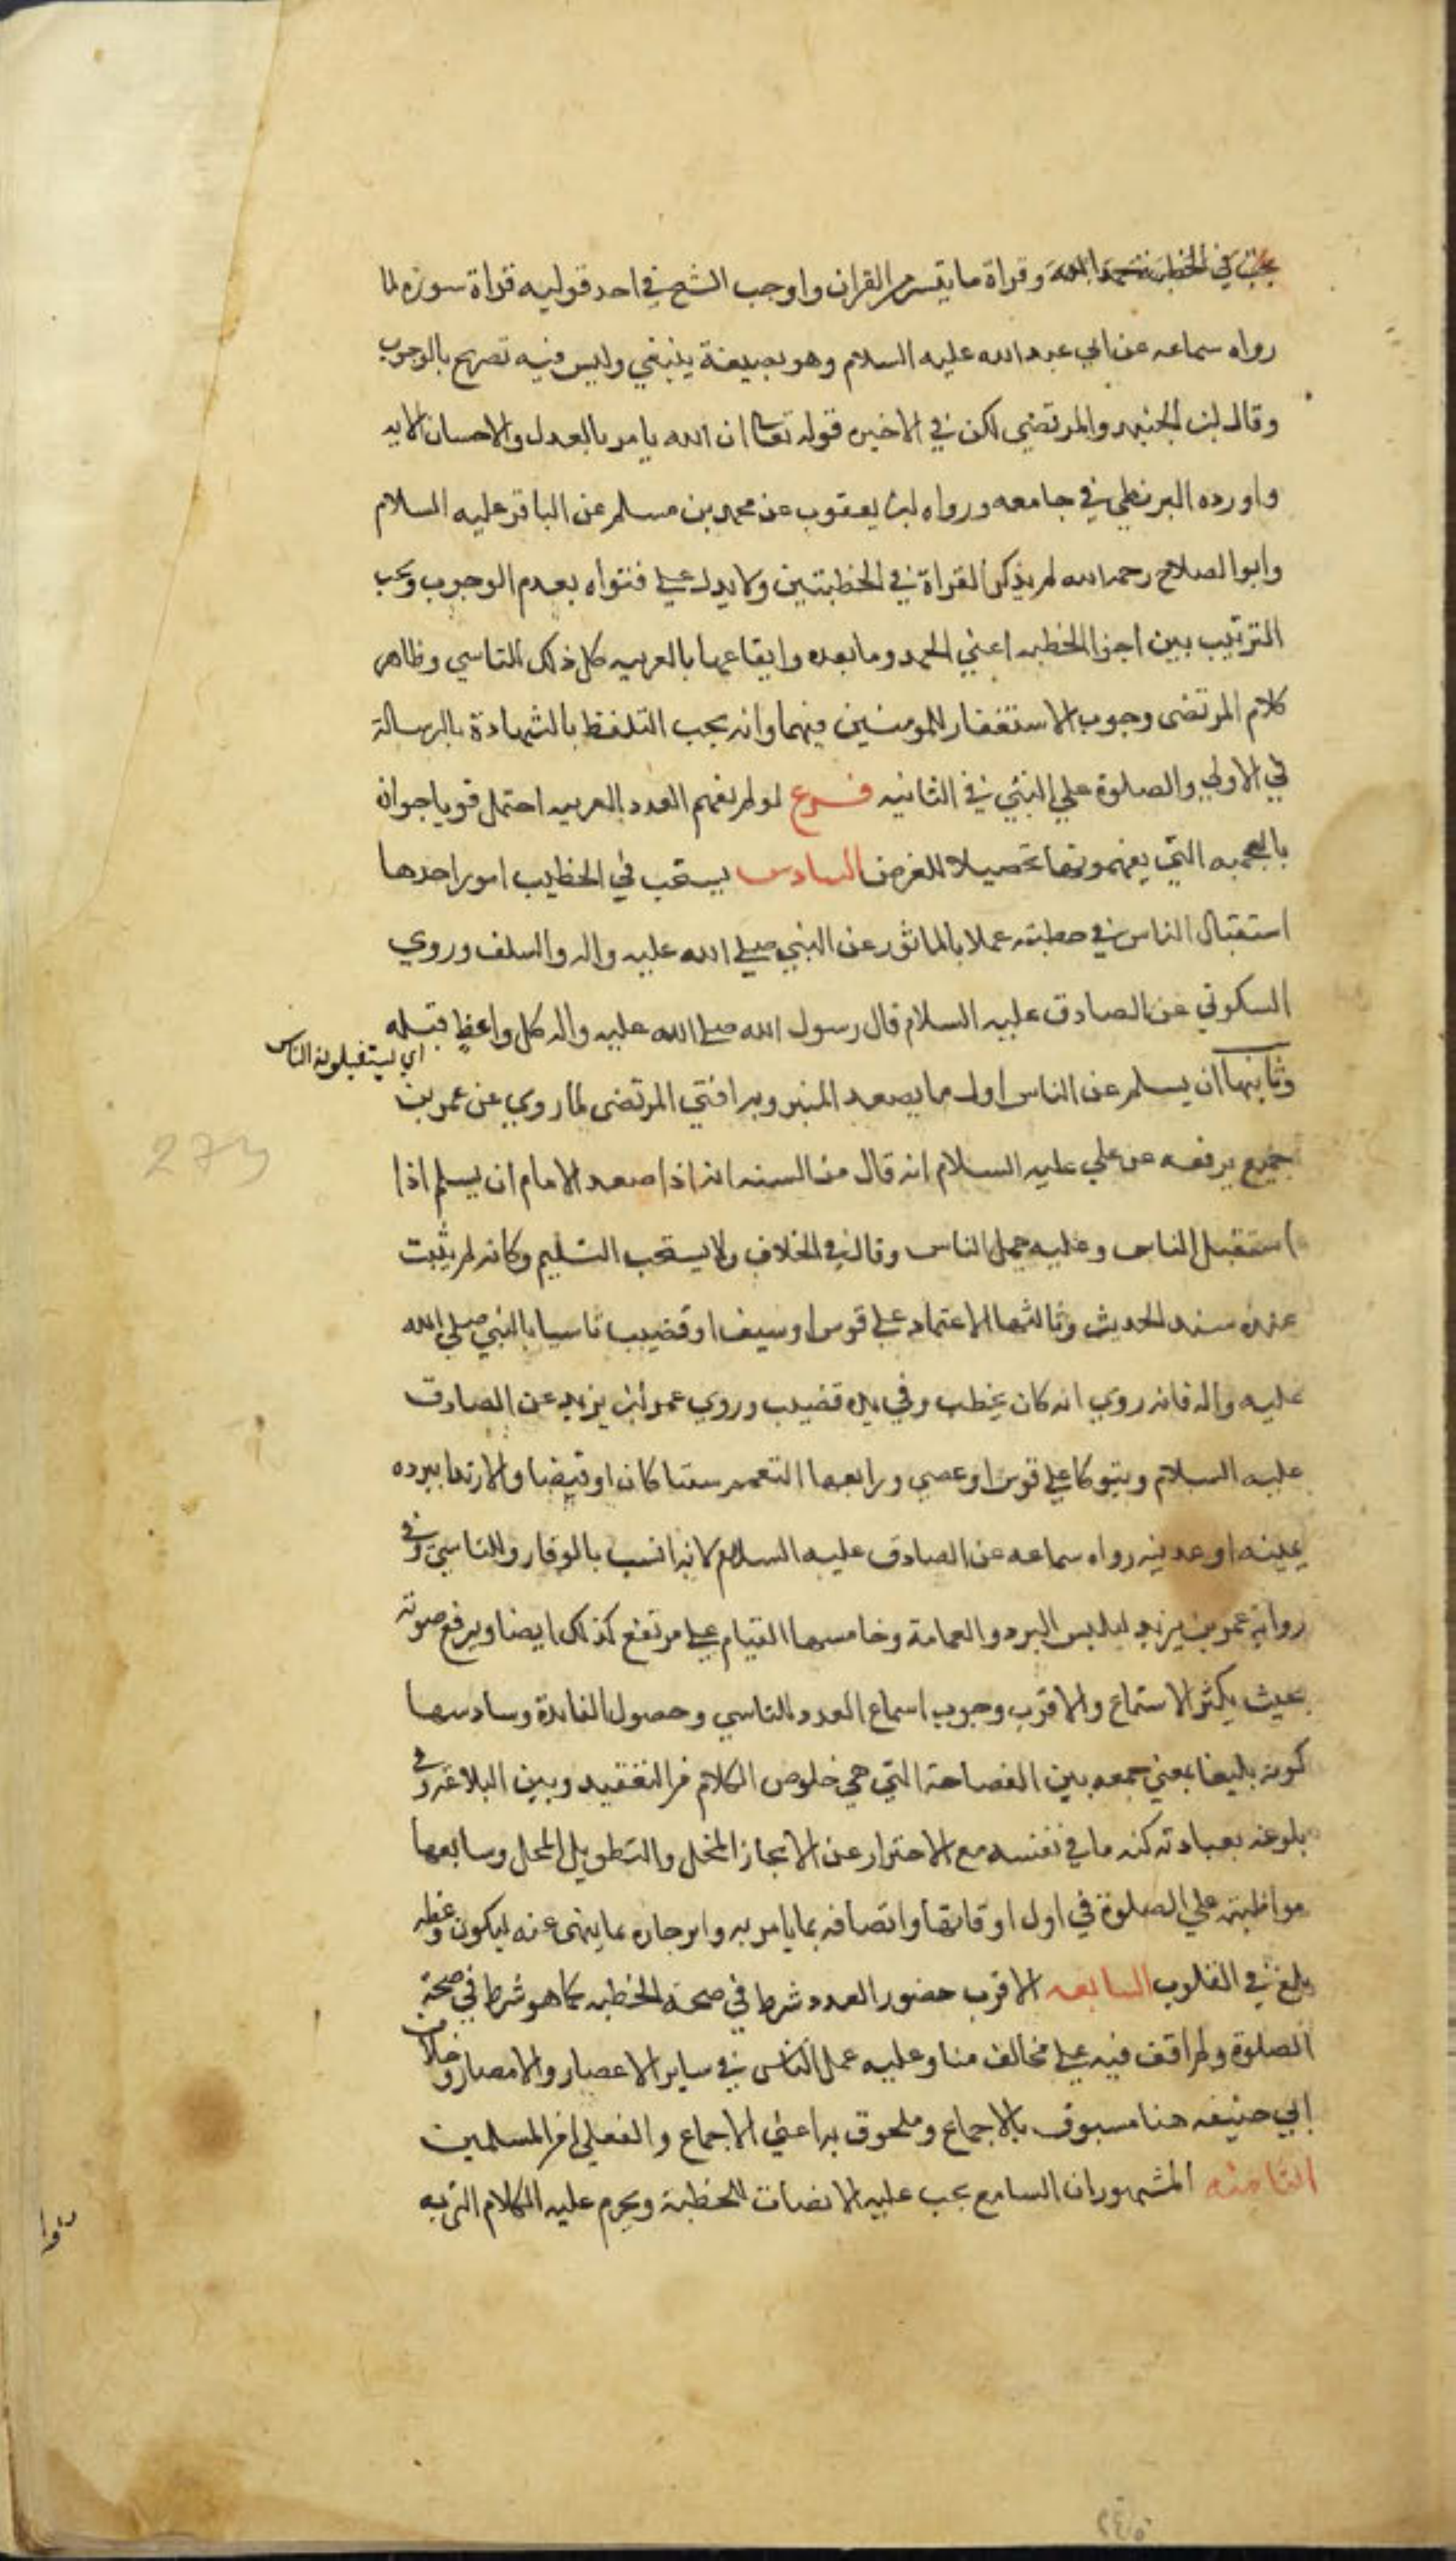 يجب في الخطبة تحميد الله وقراة ما تيسر من القران واوجب الشيخ في احد قوليه قراة سورة لما
رواه سماعه عن ابي عبد الله عليه السلام وهو بصيغة ينبغي وليس فيه تصريح بالوجوب
وقال ابن الجنيد والمرتضي لكن في الاخيره قوله تعالى ان الله يامر بالعدل والاحسان الايه
واورده البزنطي في جامعه ورواه ابن يعقوب عن محمد بن مسلم عن الباقر عليه السلام
وابو الصلاح رحمه الله لم يذكر القراة في الخطبتين ولا يدل علي فتواه بعدم الوجوب ويجب
الترتيب بين اجزا الخطبه اعني الحمد وما بعده وايقاعها بالعربيه كل ذلك للتاسي وظاهر
كلام المرتضى وجوب الاستغفار للمومنين فيهما وانه يجب التلفظ بالشهادة بالرسالة
في الاولي والصلوة علي النبي في الثانيه فرع لو لم يفهم العدد العربيه احتمل قويا جوازه
بالعجميه التي يفهمونها تحصيلا للغرض السادس يستحب في الخطيب امور احدها
استقبال الناس في خطبته عملا بالماثور عن النبي صلي الله عليه واله والسلف وروي
السكوني عن الصادق عليه السلام قال رسول الله صلي الله عليه واله كل واعظ قبله
اي يستقبلونه الناس
وثانيها ان يسلم عن الناس اول ما يصعد المنبر وبه افتي المرتضى لما روي عن عمرو بن
جميع يرفعه عن علي عليه السلام انه قال من السنه انه اذا صعد الامام ان يسلم اذا
استقبل الناس وعليه عمل الناس وقال في الخلاف ولا يستحب التسليم وكانه لم يثبت
عنده سند الحديث وثالثها الاعتماد علي قوس او سيف او قضيب تاسيا بالنبي صلي الله
عليه واله فانه روي انه كان يخطب وفي يده قضيب وروي عمر بن يزيد عن الصادق
عليه السلام ويتوكا علي قوس او عصي ورابعها التعمم ستا كان او قيضا والارتدا ببرده
يمينه او عدنيه رواه سماعه عن الصادق عليه السلام لانه انسب بالوقار وللتاسي وفي
رواية عمر بن يزيد ليلبس البرد والعمامة وخامسها القيام علي مرتفع كذلك ايضا ويرفع صوته
بحيث يكثر الاستماع والاقرب وجوب اسماع العدد للتاسي وحصول الفايدة وسادسها
كونه بليغا بمعني جمعه بين الفصاحة التي هي خلوص الكلام من التعقيد وبين البلاغة وفي
بلوغه بعبادته كنه ما في نفسه مع الاحتراز عن الايجاز المخل والتطويل الممل وسابعها
مواظبته علي الصلوة في اول اوقاتها واتصافه بما يامر به وانزجاره عما ينهى عنه ليكون وعظه
ابلغ في القلوب السابعه الاقرب حضور العدد شرط في صحة الخطبه كما هو شرط في صحة
الصلوة ولم اقف فيه علي مخالف منا وعليه عمل الناس في ساير الاعصار والامصار وخلاف
ابي حنيفه هنا مسبوق بالاجماع وملحوق به اعني الاجماع والفعلي من المسلمين
الثامنه المشهور ان السامع يجب عليه الانصات للخطبة ويحرم عليه الكلام
273